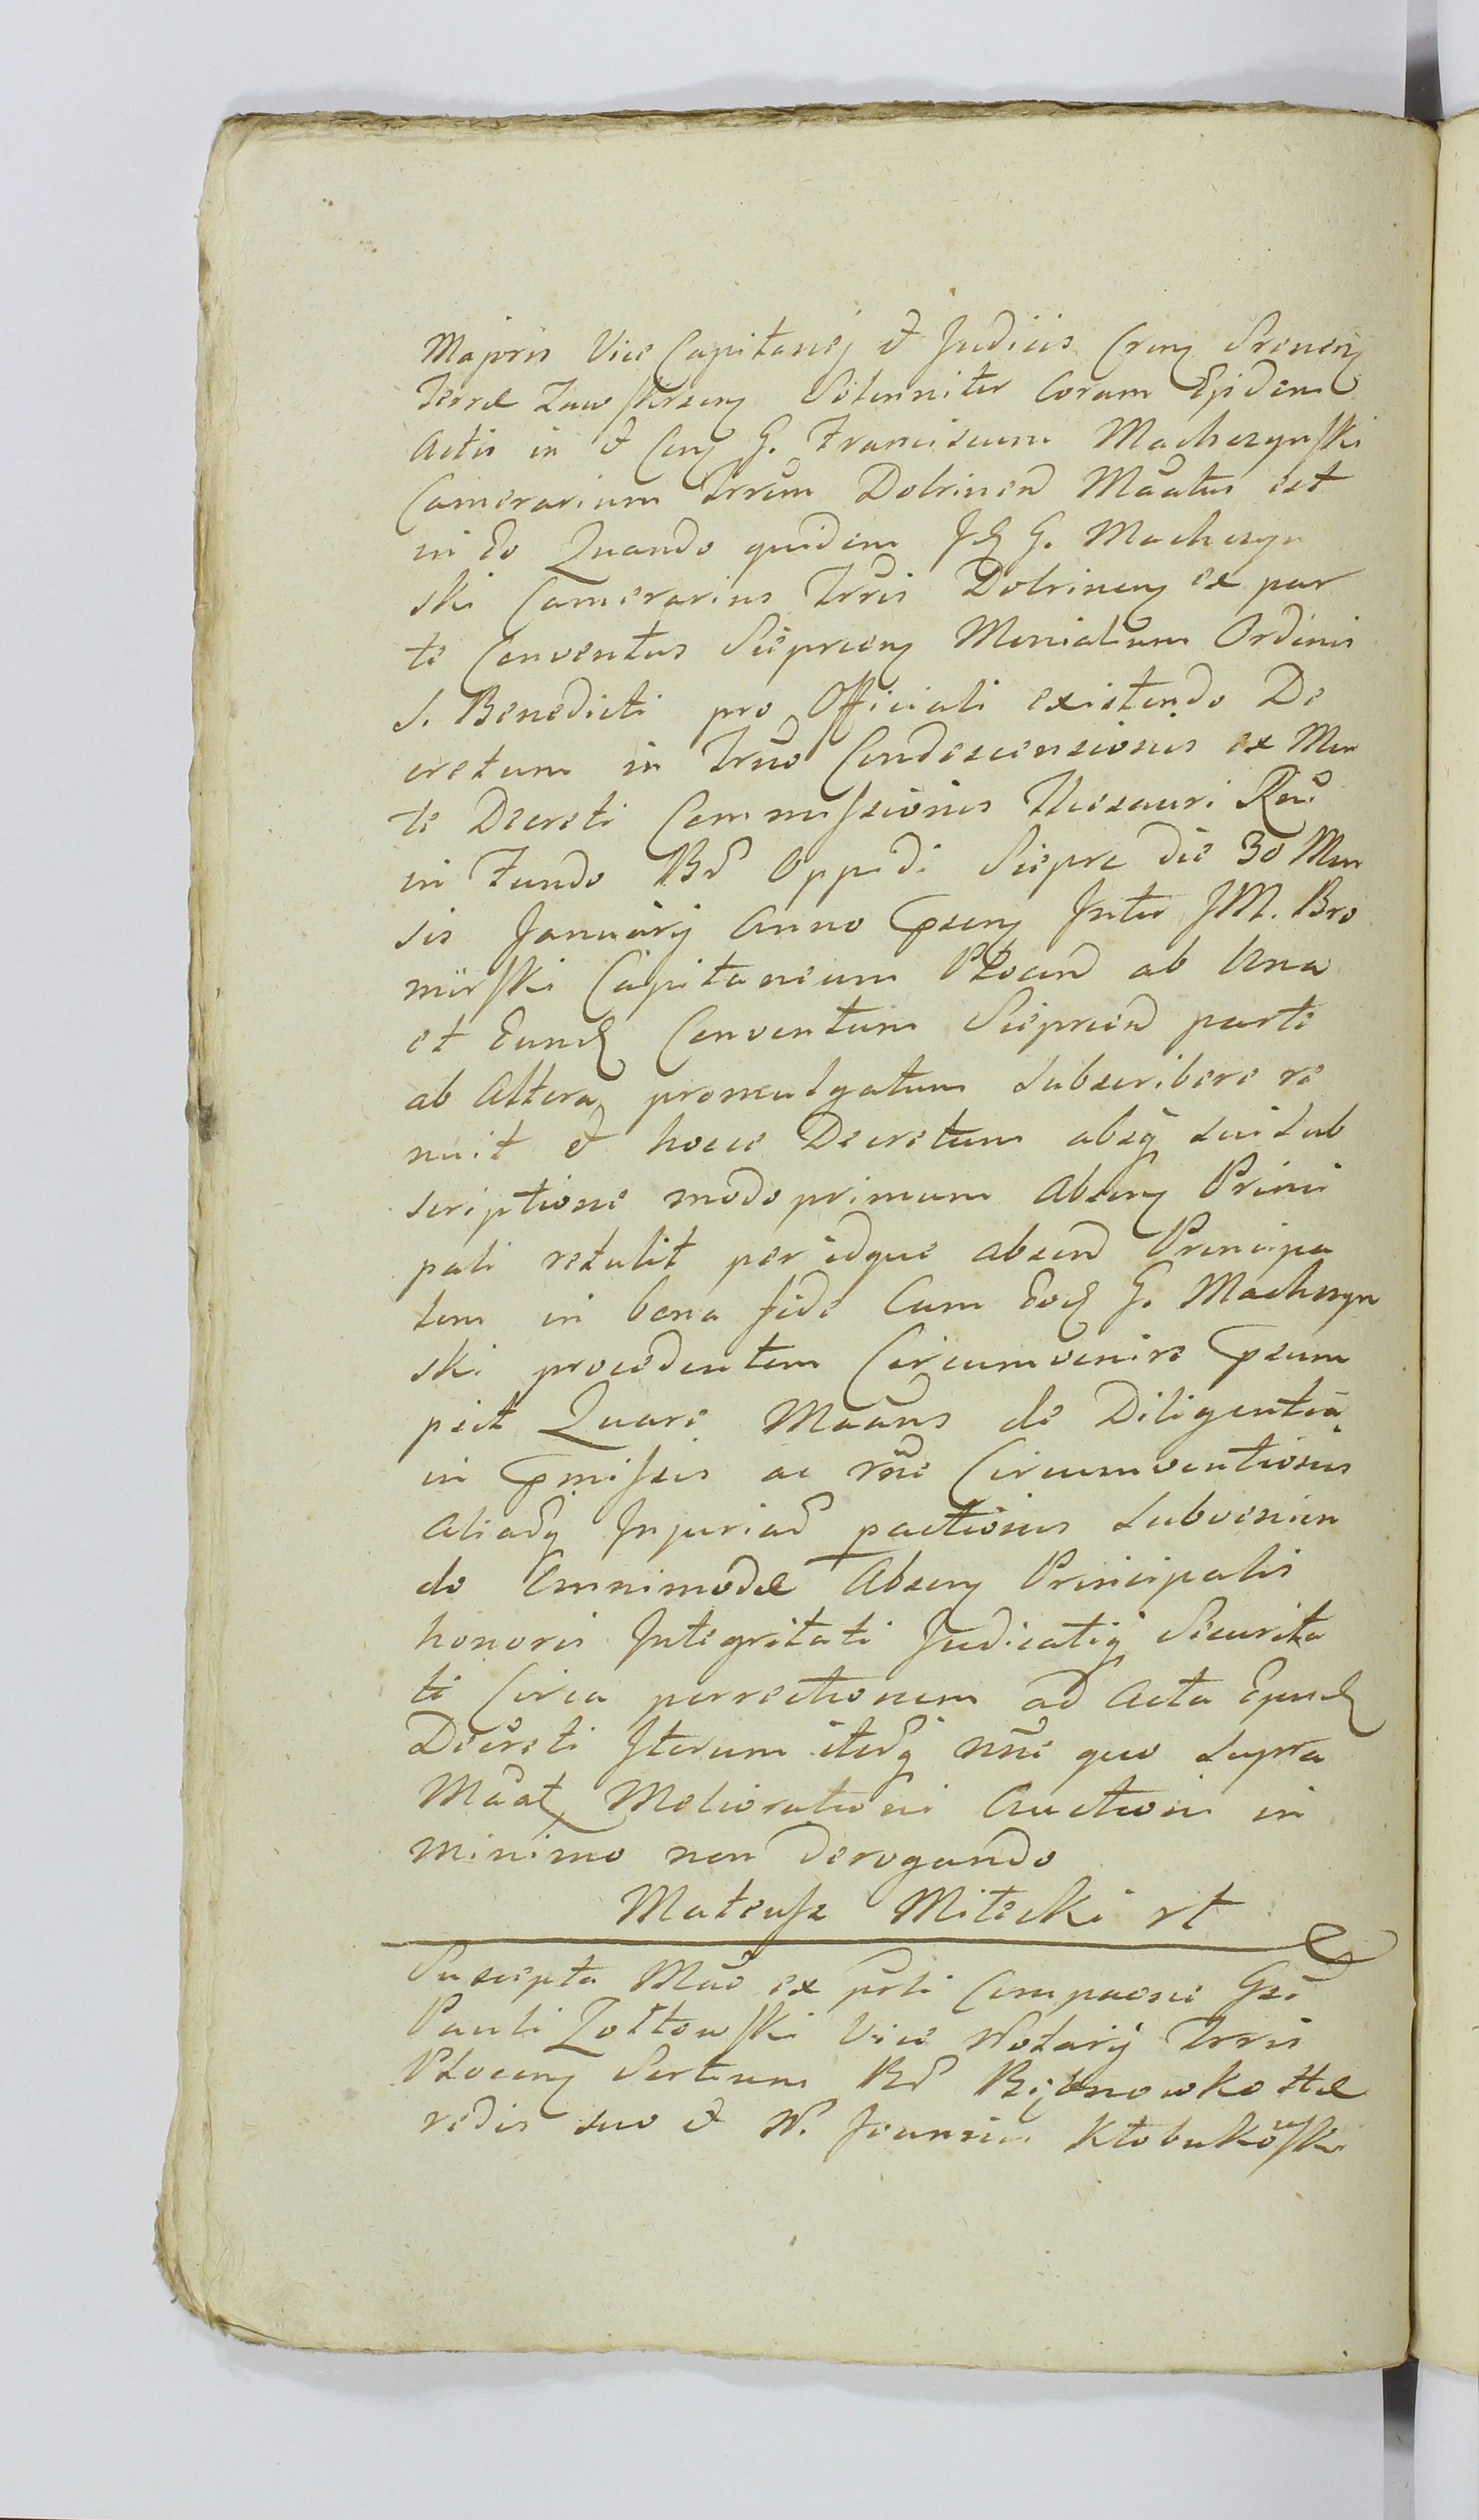 Majoris Vice Capitanej et Judicis Creny Sreneny
Terræ Zawskrzeny Solenniter Coram Ejsdem
Actis in et Ceny G. Franciscum Machezynski
Camerarium Trrum Dobrinen Maatus est
in Eo Quando quidem Jd G. Macheyn
ski Camerarius Trris Dobrineny ex par
te Conventus Siepricny Monialium Ordinis
S. Benedicti pro Officiali existendo De
cretum in Trno Condescensionis ex Men
te Decreti Commissionis Thesauri Rni
in Fundo Bd Oppidi Sieprc die 30 Men
sis Januarij Anno Pseny Inter JM. Bro
mirski Capitaneum Plocen ab Una
et Eund Conventum Siepricen parte
ab Altera promulgatum Subscribere re
nuit et hocce Decretum absq Sui Sub
scriptione modo primum Abseny Princi
pali retulit per idque absen Principa
lem in bona fide Cum Eod G. Macheyn
ski procedentem Circumvenire Psum
psit Quare Maans de Diligentia
in Pmissis ac rne Circumventionis
Aliasq Injurias pactionis Subvenien
do Omnimodæ Abseny Principalis
honoris Integritati Judicatiq Securita
ti Circa porrectionem ad Acta Ejusd
Decreti Iterum iterq nne quo Supra
Maat Meliorationi Auctioni in
minimo non derogando
Mateusz Milecki rt
Suscepta Mao ex prti Compaene Gsi
Pauli Zołtowski Vice Notarij Trris
Ploceny Sortium Bd Bijonowko Hæ
redis suo et N. Joannis Kłobukowski